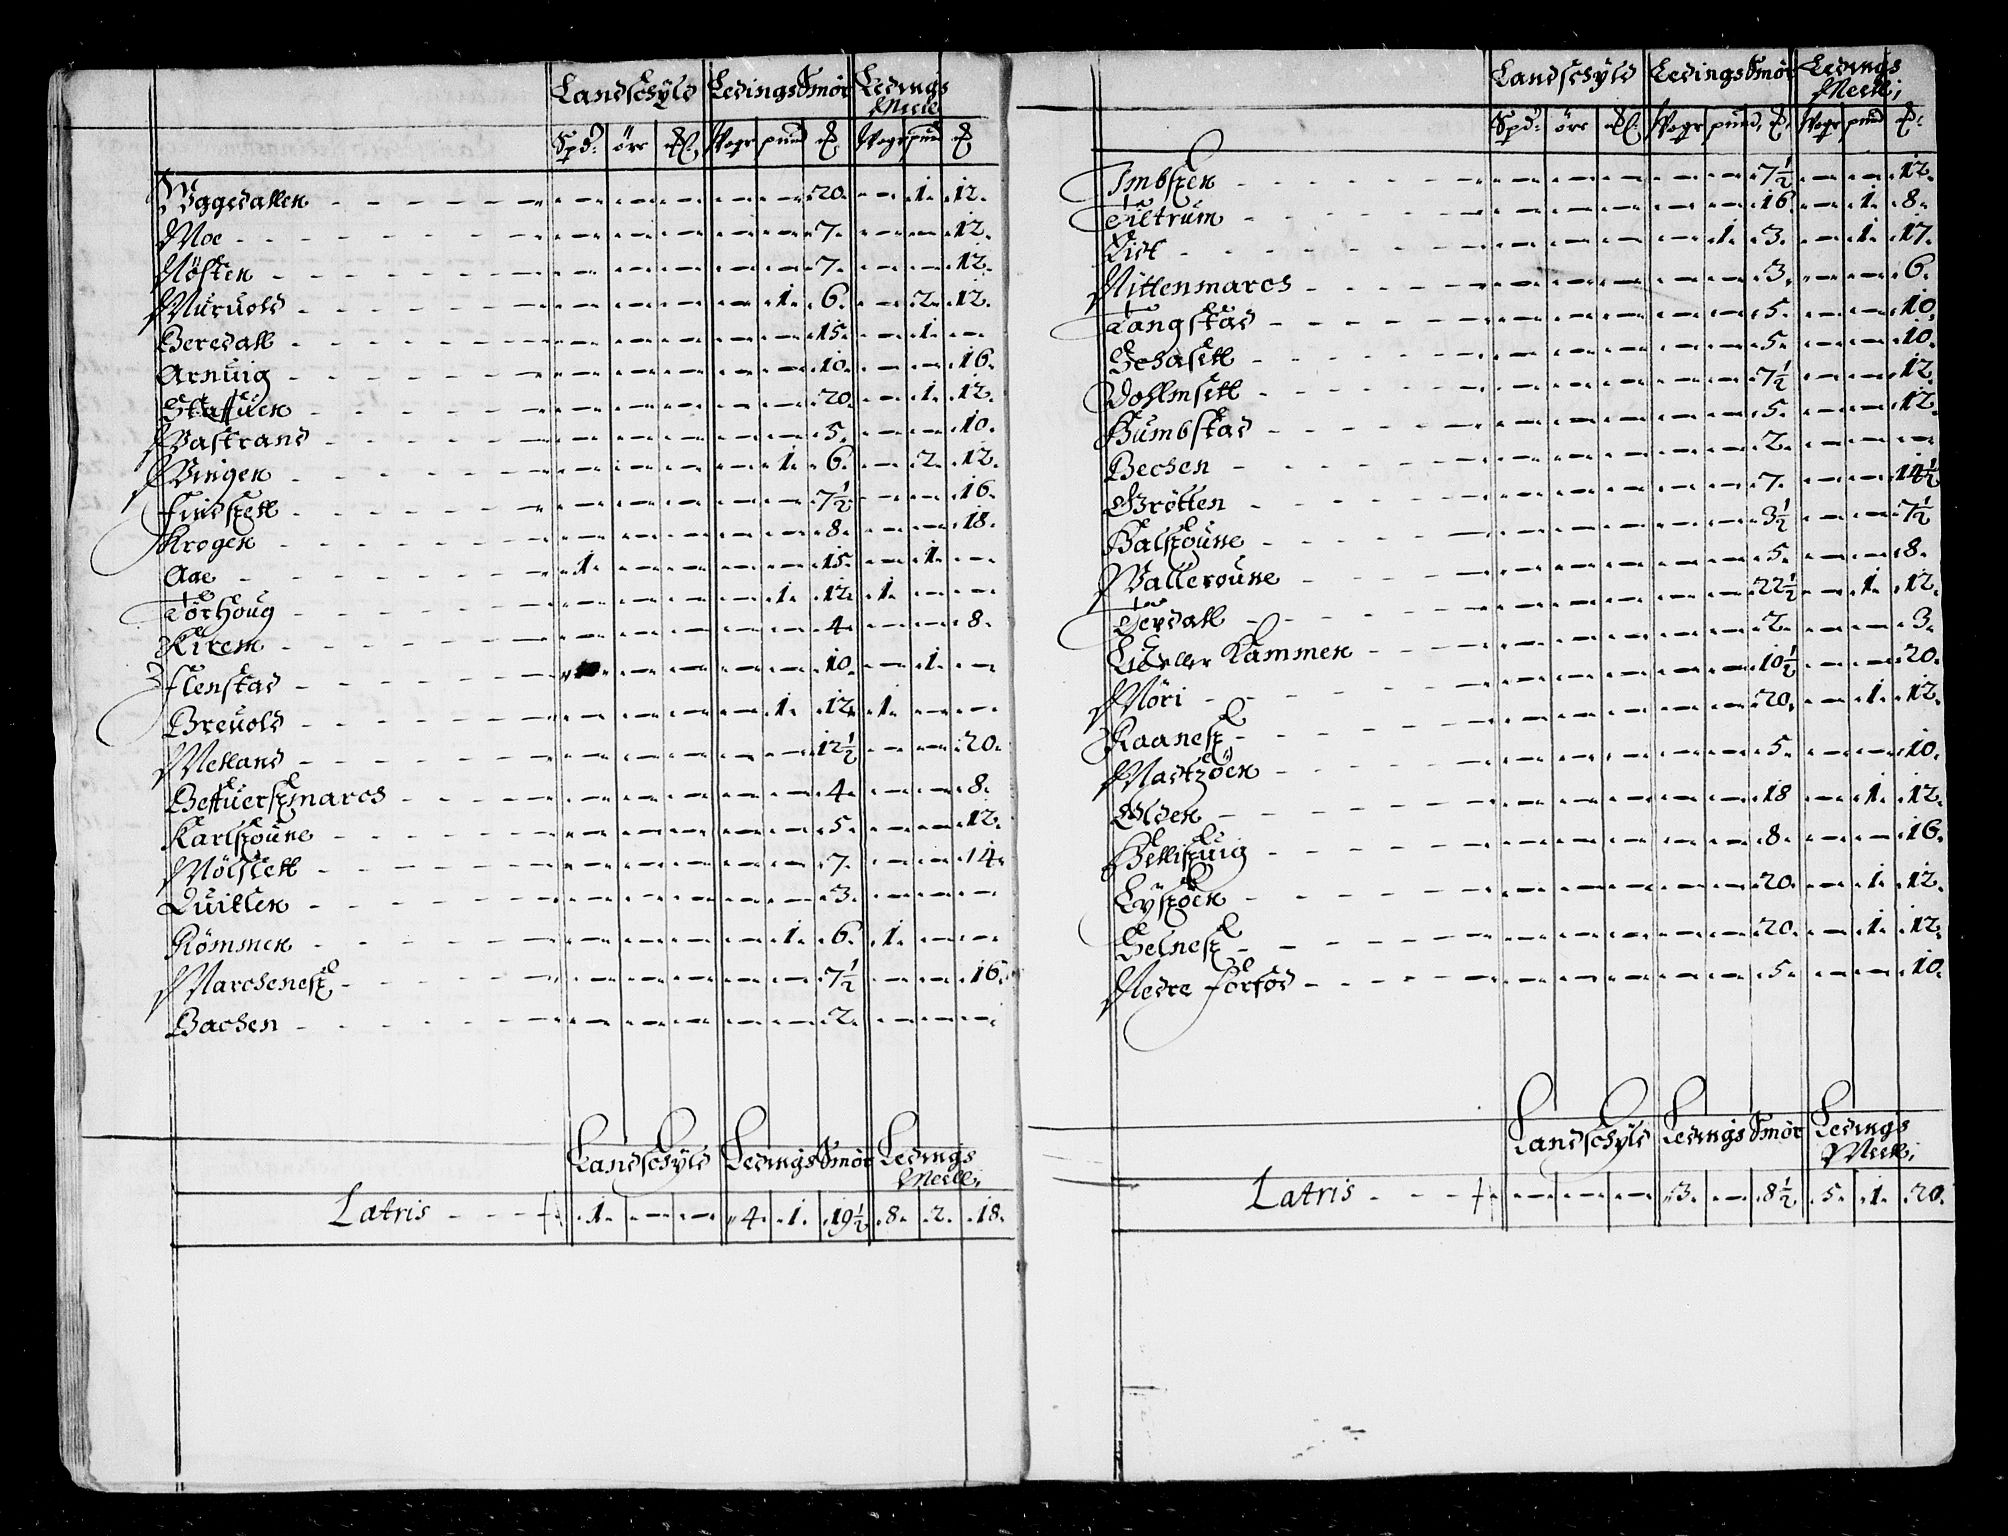 Landschyld LedingsSmör Ledings Meell
Spd: öre Wogr pund Wogr pund
Uggedallen 20. 1. 12.
Moe 7. 12.
Nösten 7. 12.
Muruold 1. 6. 2. 12.
Beredall 15. 1.
Arnuig 10. 16.
Staffuen 20. 1. 12.
Wastrand 5. 10.
Wingen 1. 6. 2. 12.
Findszell 7½ 16.
Krogen 8. 18.
Aae 1. 15. 1.
Törhoug 1. 12. 1.
Kirem 4. 8.
Flenstad 10. 1.
Breuold 1. 12. 1.
Melland 12½ 20.
Beffuerszmarcs 4. 8.
Karlszoune 5. 12.
Mölsell 7. 14.
Quillen 3.
Römmen 1. 6. 1.
Marchenesz 7½ 16.
Bachen 2.
Landschyld LedingsSmör Ledings Meell.
Latris 1. 4. 1. 19½ 8. 2. 18.
Landschyld LedingsSmör Ledings Meell;
Spd: öre Wogr pund Wogr pund
Imbszen 7½ 12.
Tiltrum 16. 1. 8.
List 1. 3. 1. 17.
Mittenmarcs 3. 6.
Tangstad 5. 10.
Sehasell 5. 10.
Dohlmsell 7½ 12.
Humbstad 5. 12.
Bechen 2.
Grötten 7. 14½
Balszoune 3½ 7½
Walleroune 5. 8.
Terdall 22½ 1. 12.
Lid eller Kammen 2. 3.
Möri 10½ 20.
Raanesz 20. 1. 12.
Mastzöen 5. 10.
Olden 18 1. 12.
Bellszuig 8. 16.
Lyszöen 20. 1. 12.
Selnesz 20. 1. 12.
Nedre Förfod 5. 10.
Landschyld LedingsSmör Ledings Meell;
Latris 3. 8½ 5. 1. 20.